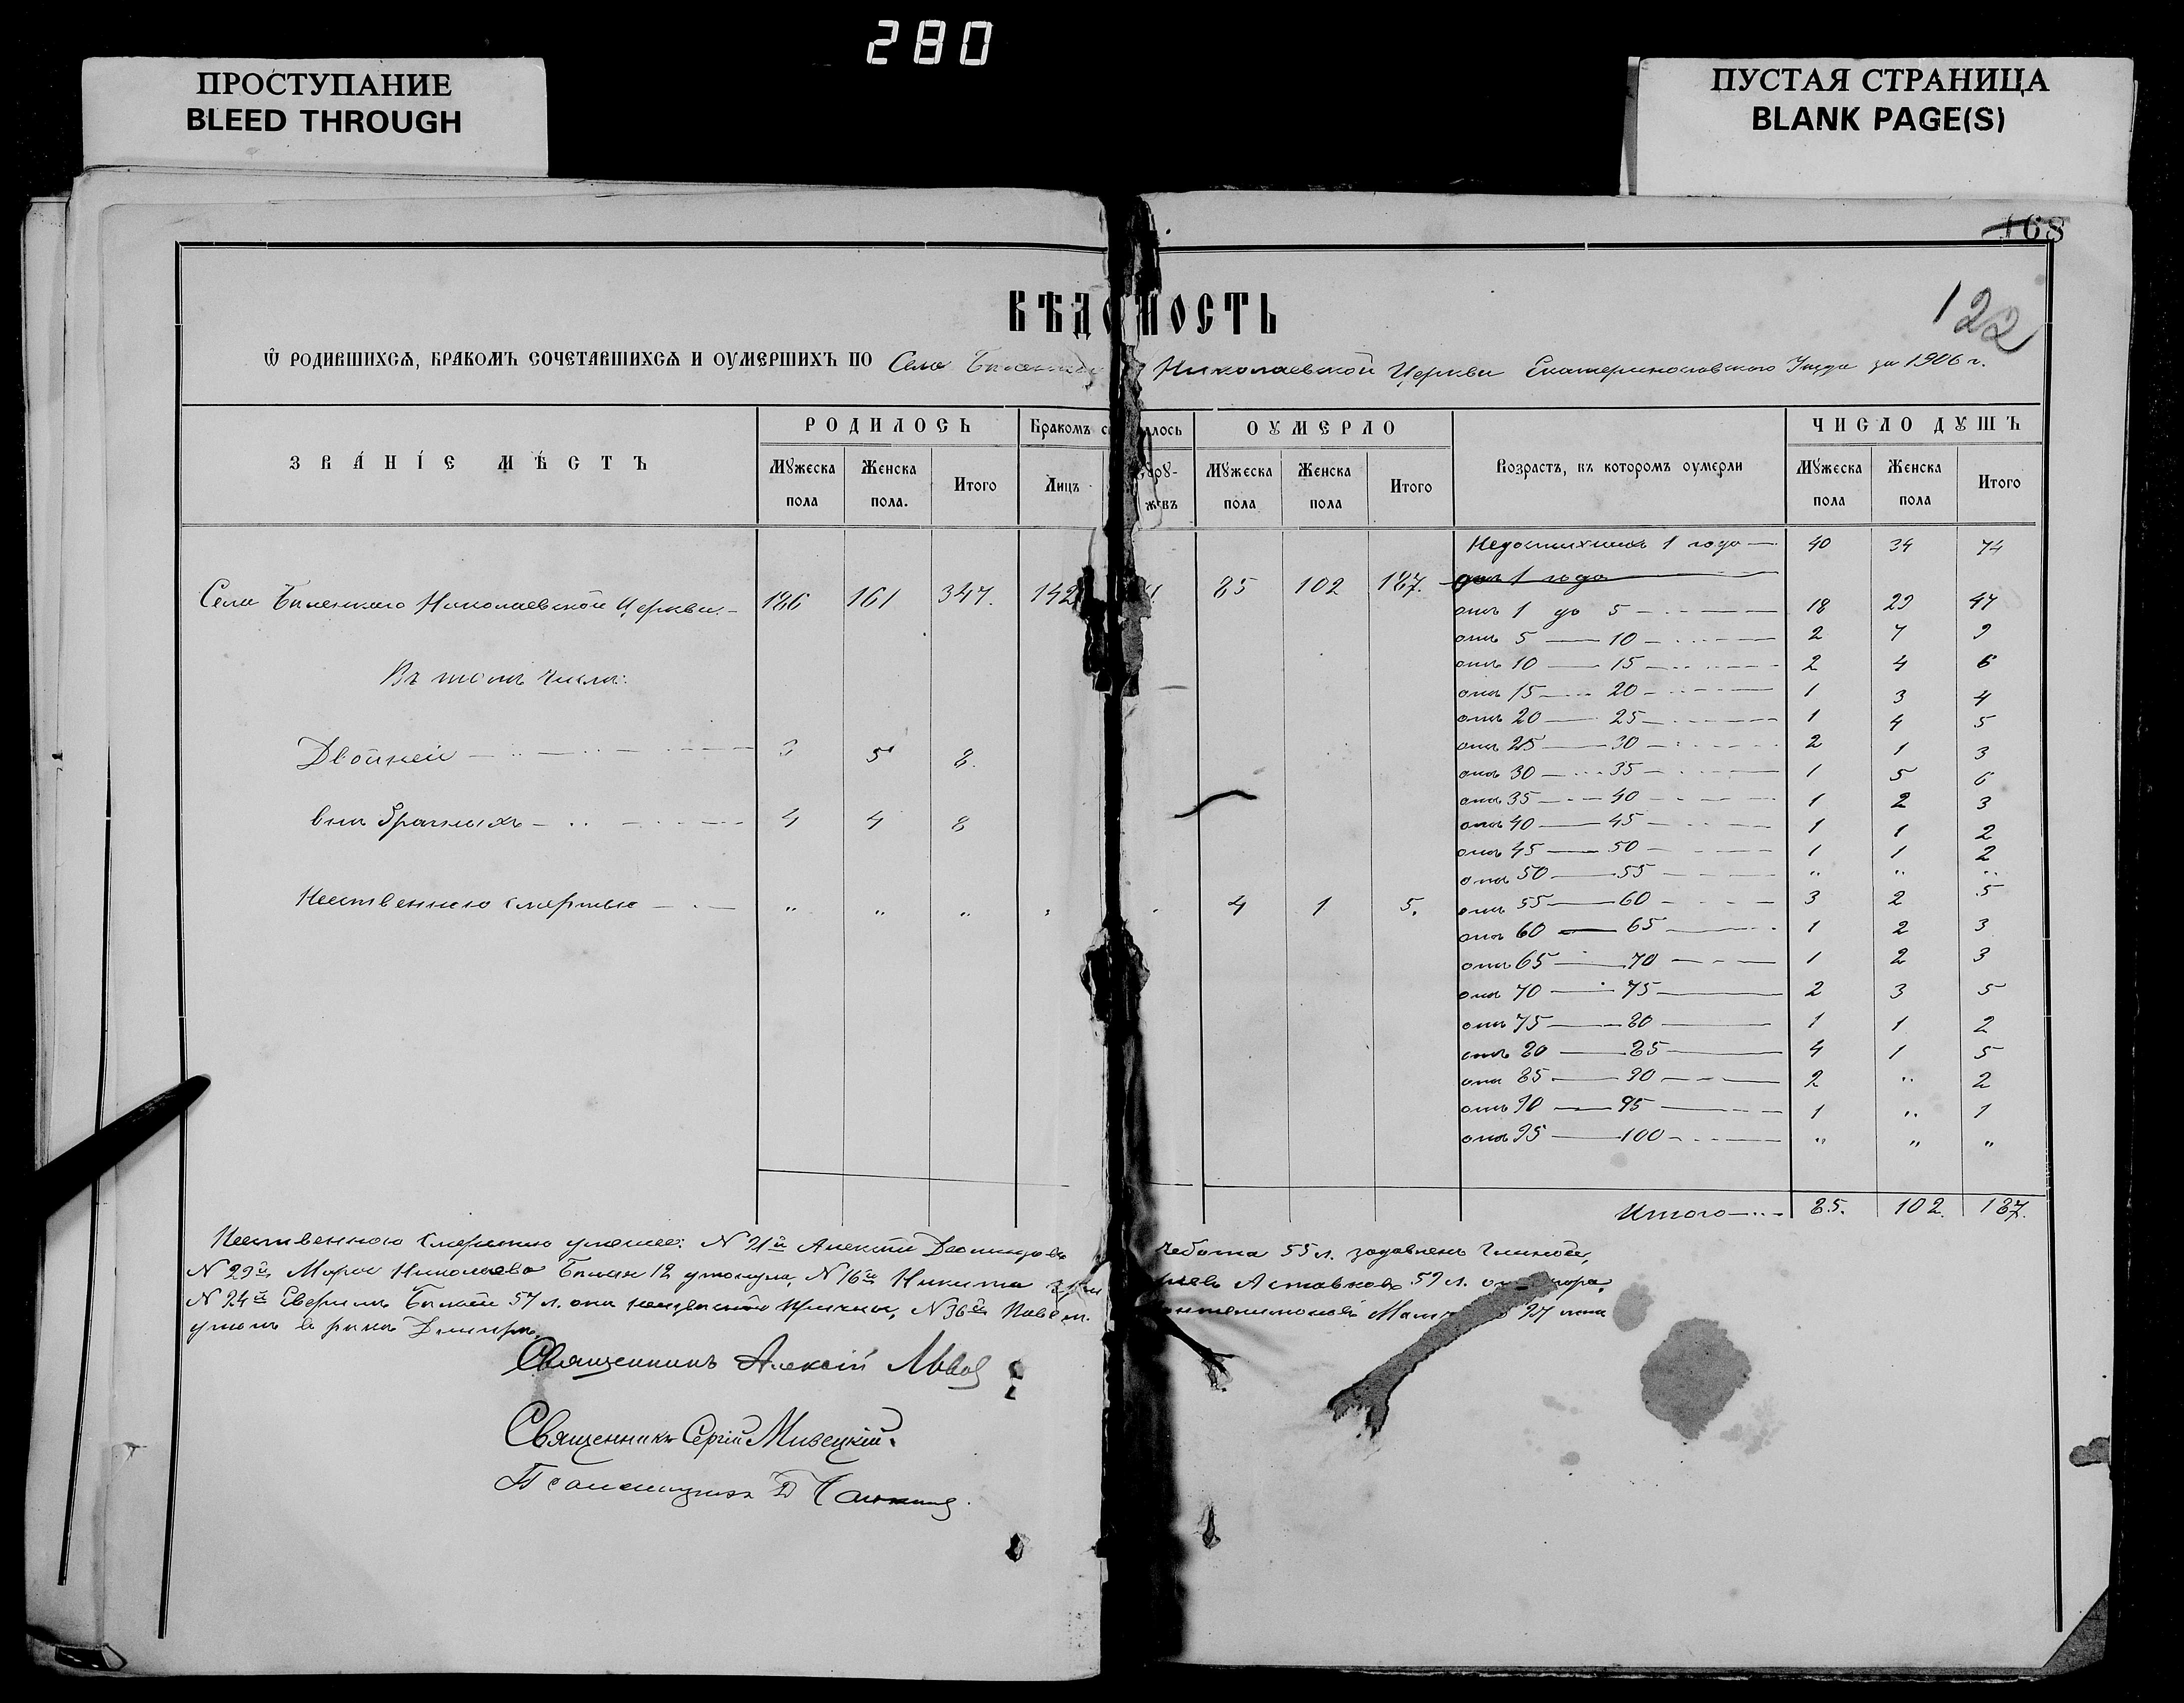 280
ПРОСТУПАНИЕ
BLEED THROUGH
ПУСТАЯ СТРАНИЦА
BLANK PAGE(S)
168
122
ВѢДОМОСТЬ
Ѿ РОДИВШИХСѦ, БРАКОМЪ СОЧЕТАВШИХСѦ И ОУМЕРШИХЪ ПО Села Николаевской Церкви Екатеринославского Уезда за 1906 г.
ЗВА́НІЕ МѢ́СТЪ
РОДИЛОСЬ
Бракомъ
ОУМЕРЛО
Возрастъ, въ которомъ оумерли
ЧИСЛО ДУШЪ
Мꙋжеска пола
Женска пола.
Итого
Лицъ
Мꙋжеска пола
Женска пола
Итого
Мꙋжеска пола
Женска пола
Итого
Недостигших 1 года — 40 34 74
Села Беленькаго Николаевской Церкви.— 186 161 347. 142 85 102 187.
от 1 года
отъ 1 до 5 — 18 29 47
отъ 5 — 10 — 2 7 9
отъ 10 — 15 — 2 4 6
Въ томъ числѣ:
отъ 15 — 20 — 1 3 4
отъ 20 — 25 — 1 4 5
отъ 25 — 30 — 2 1 3
Двойней — 3 5 8.
отъ 30 — 35 — 1 5 6
отъ 35 — 40 — 1 2 3
внѣ брачныхъ — 4 4 8
отъ 40 — 45 — 1 1 2
отъ 45 — 50 — 1 1 2
отъ 50 — 55 — " " "
Неественною смертью — " " " " 4 1 5.
отъ 55 — 60 — 3 2 5
отъ 60 — 65 — 1 2 3
отъ 65 — 70 — 1 2 3
отъ 70 — 75 — 2 3 5
отъ 75 — 80 — 1 1 2
отъ 80 — 85 — 4 1 5
отъ 85 — 90 — 2 " 2
отъ 90 — 95 — 1 " 1
отъ 95 — 100 — " " "
Итого — 85. 102. 187.
Неественною смертию умерше: N 21й Алексѣй 55 л. задавленъ глиной,
N 29й Николаева Билая 12 утонула, N 16й Никита 59 л.
N 24й 57 л. N 36й 27 лета
утонъ въ рѣкѣ Днипрѣ.
Священникъ Алексій Львов
Священникъ Сергій
Псаломщикъ